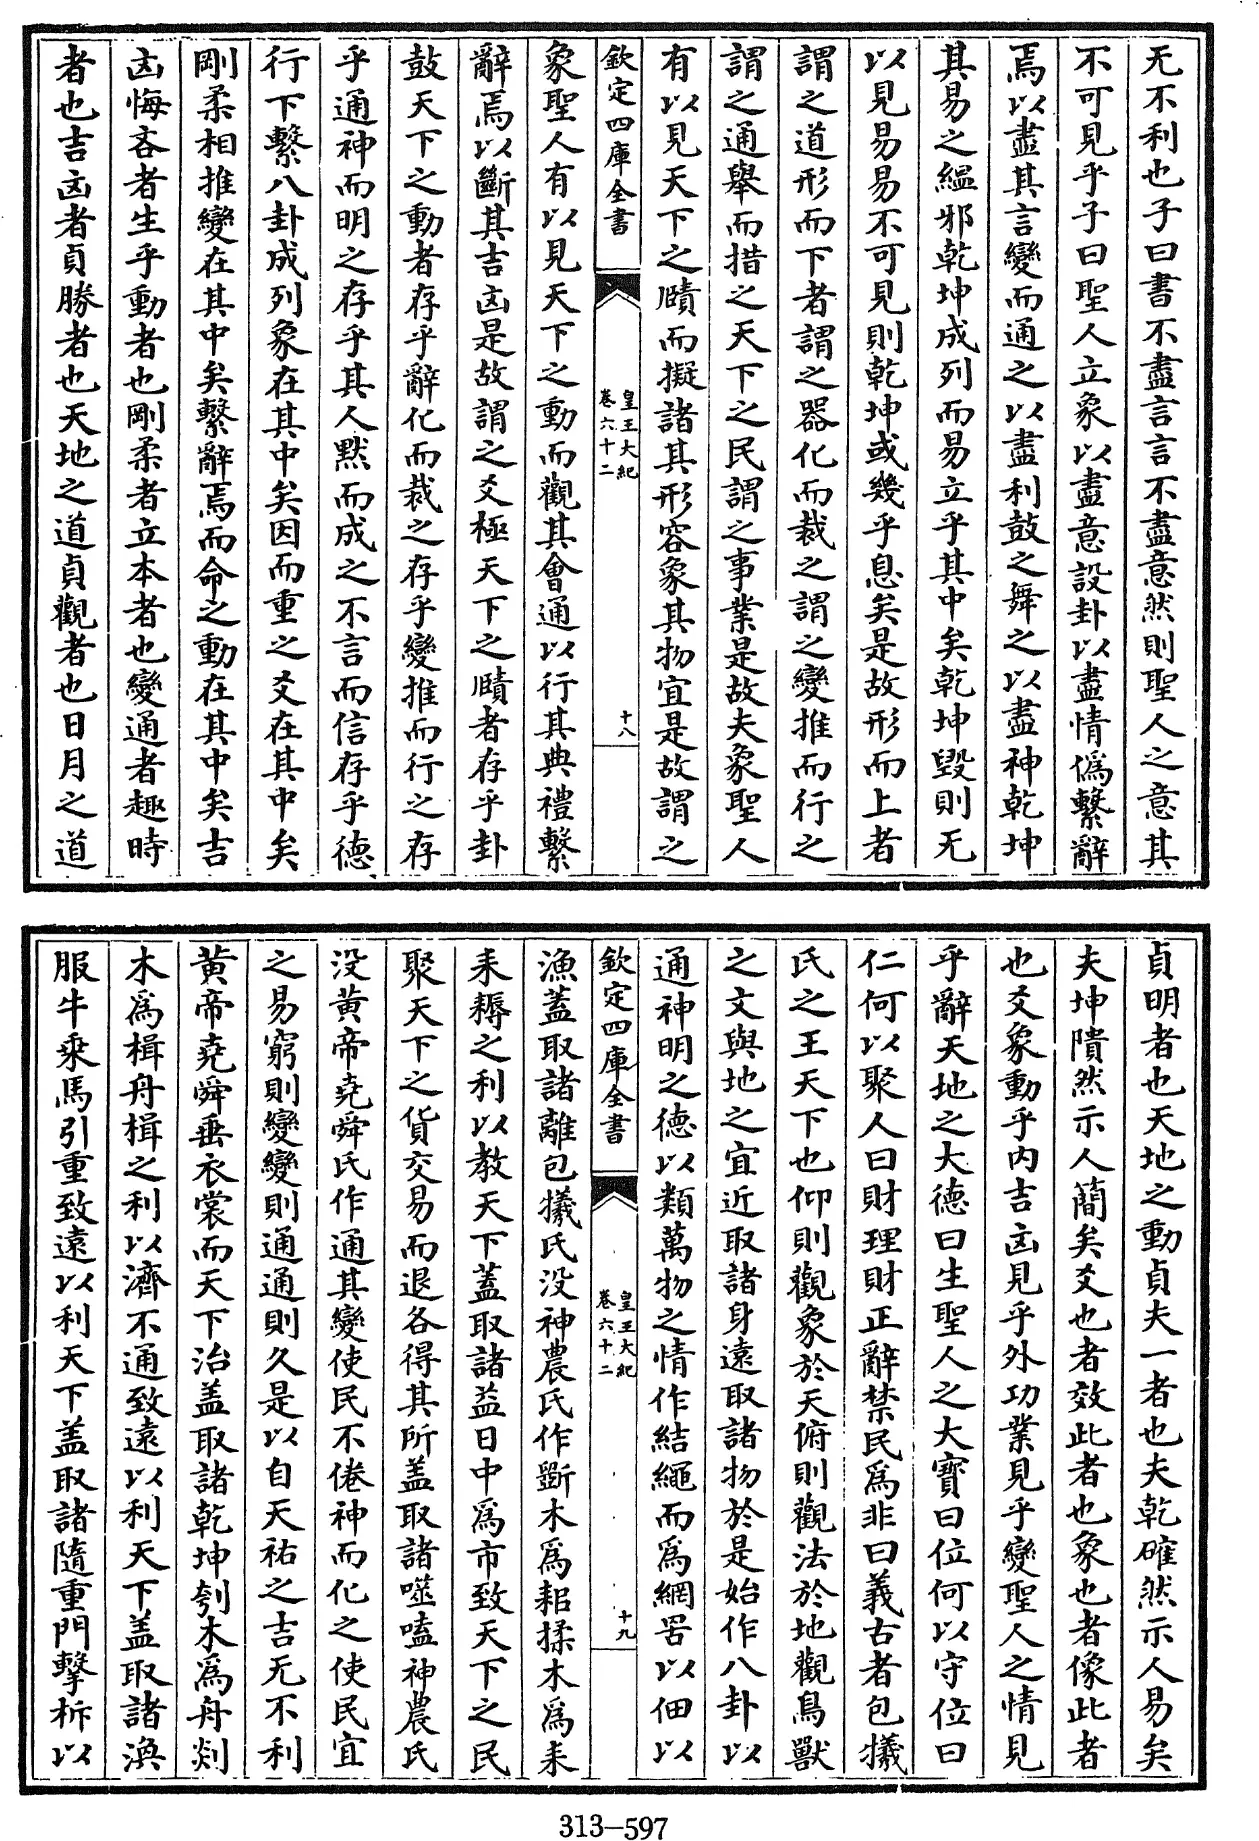 无不利也子曰書不盡言言不盡意然則聖人之意其
不可見乎子曰聖人立象以盡意設卦以盡情僞繫辭
焉以盡其言變而通之以盡利鼓之舞之以盡神乾坤
其易之緼邪乾坤成列而易立乎其中矣乾坤毀則无
以見易易不可見則乾坤或幾乎息矣是故形而上者
謂之道形而下者謂之器化而裁之謂之變推而行之
謂之通舉而措之天下之民謂之事業是故夫象聖人
有以見天下之賾而擬諸其形容象其物宜是故謂之
欽定四庫全書
皇王大紀
卷六十二
十八
象聖人有以見天下之動而觀其會通以行其典禮繫
辭焉以斷其吉凶是故謂之爻極天下之賾者存乎卦
鼓天下之動者存乎辭化而裁之存乎變推而行之存
乎通神而明之存乎其人默而成之不言而信存乎德
行下繫八卦成列象在其中矣因而重之爻在其中矣
剛柔相推變在其中矣繫辭焉而命之動在其中矣吉
凶悔吝者生乎動者也剛柔者立本者也變通者趣時
者也吉凶者貞勝者也天地之道貞觀者也日月之道
貞明者也天地之動貞夫一者也夫乾確然示人易矣
夫坤隤然示人簡矣爻也者效此者也象也者像此者
也爻象動乎内吉凶見乎外功業見乎變聖人之情見
乎辭天地之大德曰生聖人之大寶曰位何以守位曰
仁何以聚人曰財理財正辭禁民爲非曰義古者包犧
氏之王天下也仰則觀象於天俯則觀法於地觀鳥獸
之文與地之宜近取諸身遠取諸物於是始作八卦以
通神明之德以類萬物之情作結繩而爲網罟以佃以
欽定四庫全書
皇王大紀
卷六十二
十九
漁蓋取諸離包犧氏没神農氏作斲木爲耜揉木爲耒
耒耨之利以教天下蓋取諸益日中爲市致天下之民
聚天下之貨交易而退各得其所盖取諸噬嗑神農氏
没黄帝堯舜氏作通其變使民不倦神而化之使民宜
之易窮則變變則通通則久是以自天祐之吉无不利
黄帝堯舜垂衣裳而天下治盖取諸乾坤刳木爲舟剡
木爲楫舟楫之利以濟不通致遠以利天下盖取諸渙
服牛乘馬引重致遠以利天下盖取諸隨重門擊柝以
313-597